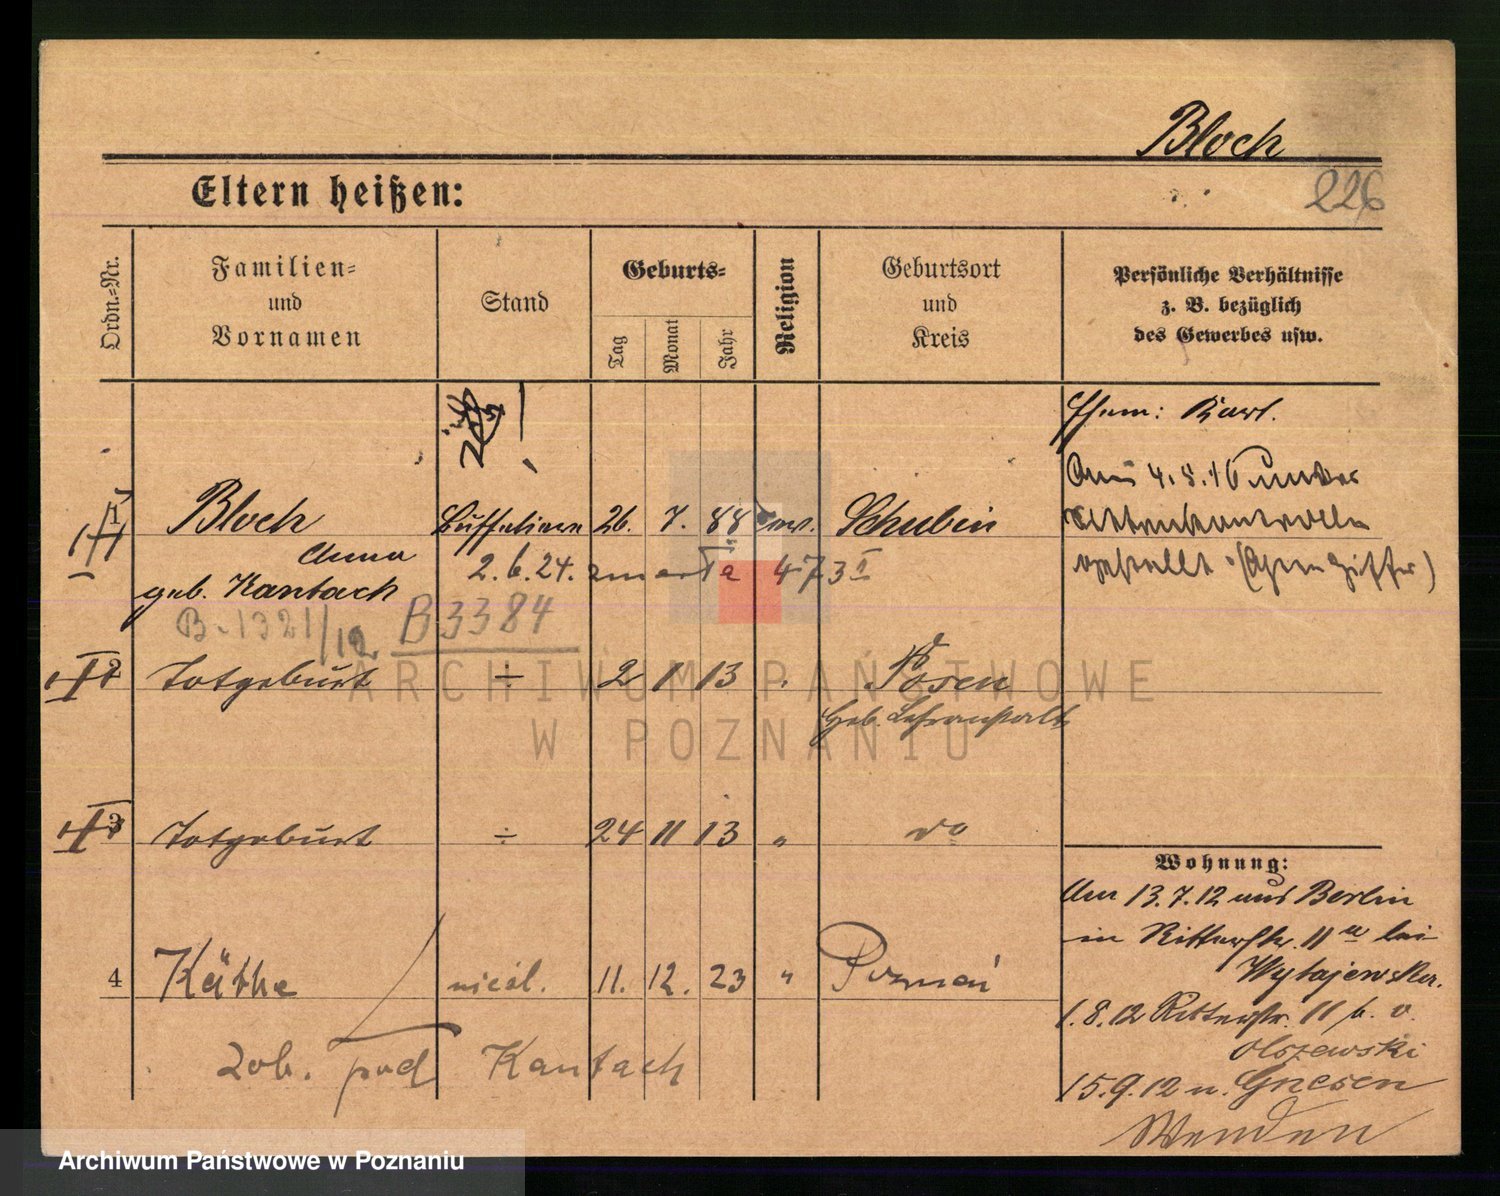 Bloch
226
Eltern heißen:
Ordn.-Nr.
Familien-
und
Vornamen
Stand
Geburts-
Tag
Monat
Jahr
Religion
Geburtsort
und
Kreis
Persönliche Verhältnisse
z. B. bezüglich
des Gewerbes usw.
Ehem: Karl.
Am 4.8.16 unter
gestellt
1 Bloch 26. 7. 88 ev. Schubin
Anna 2.6.24. zmarła 473
geb. Kantach
B-1321/12 B3384
2 Totgeburt ÷ 2 1 13 " Posen
Geb. Lehranstalt
3 Totgeburt ÷ 24 11 13 " do
Wohnung:
Am 13.7.12 aus Berlin
in Ritterstr. 11 bei
4 Käthe nieśl. 11. 12. 23 " Poznań
1.8.12 Ritterstr. 11 b. v.
Olszewski
15.9.12 n. Gnesen
Wenden
Zob. pod Kantach
ARCHIWUM PAŃSTWOWE
W POZNANIU
Archiwum Państwowe w Poznaniu